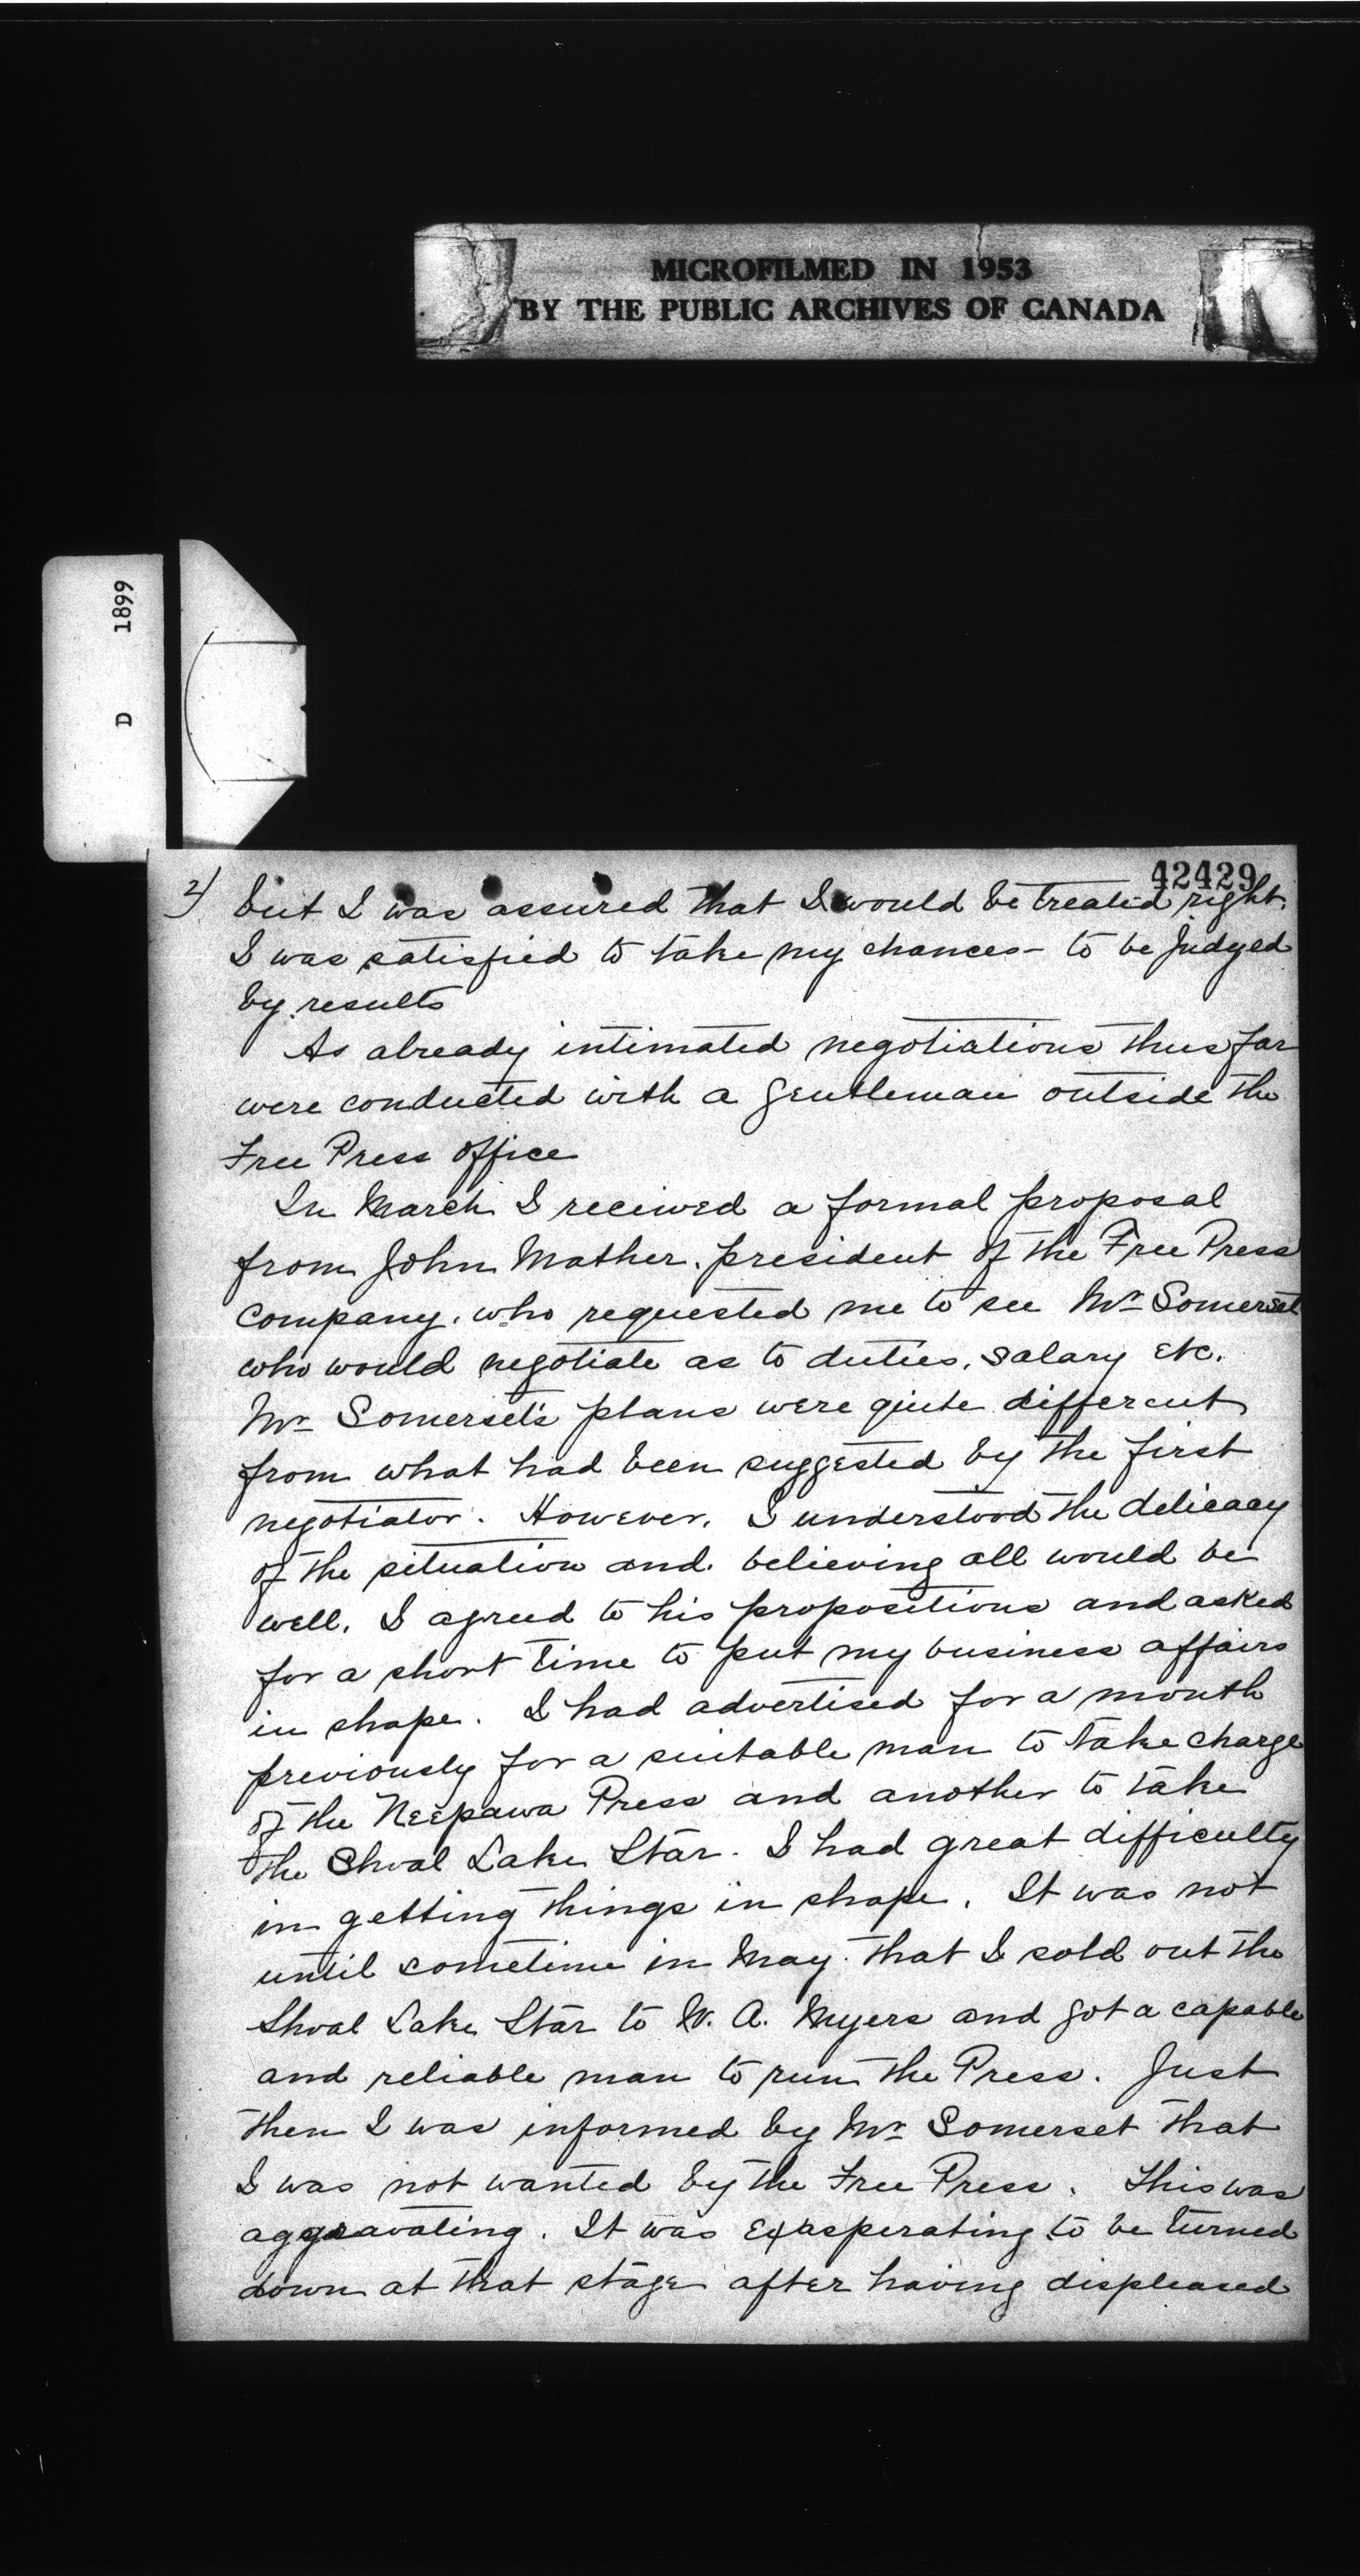 MICROFILMED IN 1953
BY THE PUBLIC ARCHIVES OF CANADA
D 1899
42429
2) but I was assured that I would be treated right.
I was satisfied to take my chances - to be judged
by results
As already intimated negotiations thus far
were conducted with a gentleman outside the
Free Press office
In March I received a formal proposal
from John Mather, president of the Free Press
Company, who requested me to see Mr Somerset
who would negotiate as to duties, salary etc.
Mr Somerset's plans were quite different
from what had been suggested by the first
negotiator. However, I understood the delicacy
of the situation and believing all would be
well, I agreed to his propositions and asked
for a short time to put my business affairs
in shape. I had advertised for a month
previously for a suitable man to take charge
of the Neepawa Press and another to take
the Shoal Lake Star. I had great difficulty
in getting things in shape. It was not
until sometime in May that I sold out the
Shoal Lake Star to W. A. Myers and got a capable
and reliable man to run the Press. Just
then I was informed by Mr Somerset that
I was not wanted by the Free Press. This was
aggravating. It was exasperating to be turned
down at that stage after having displeased